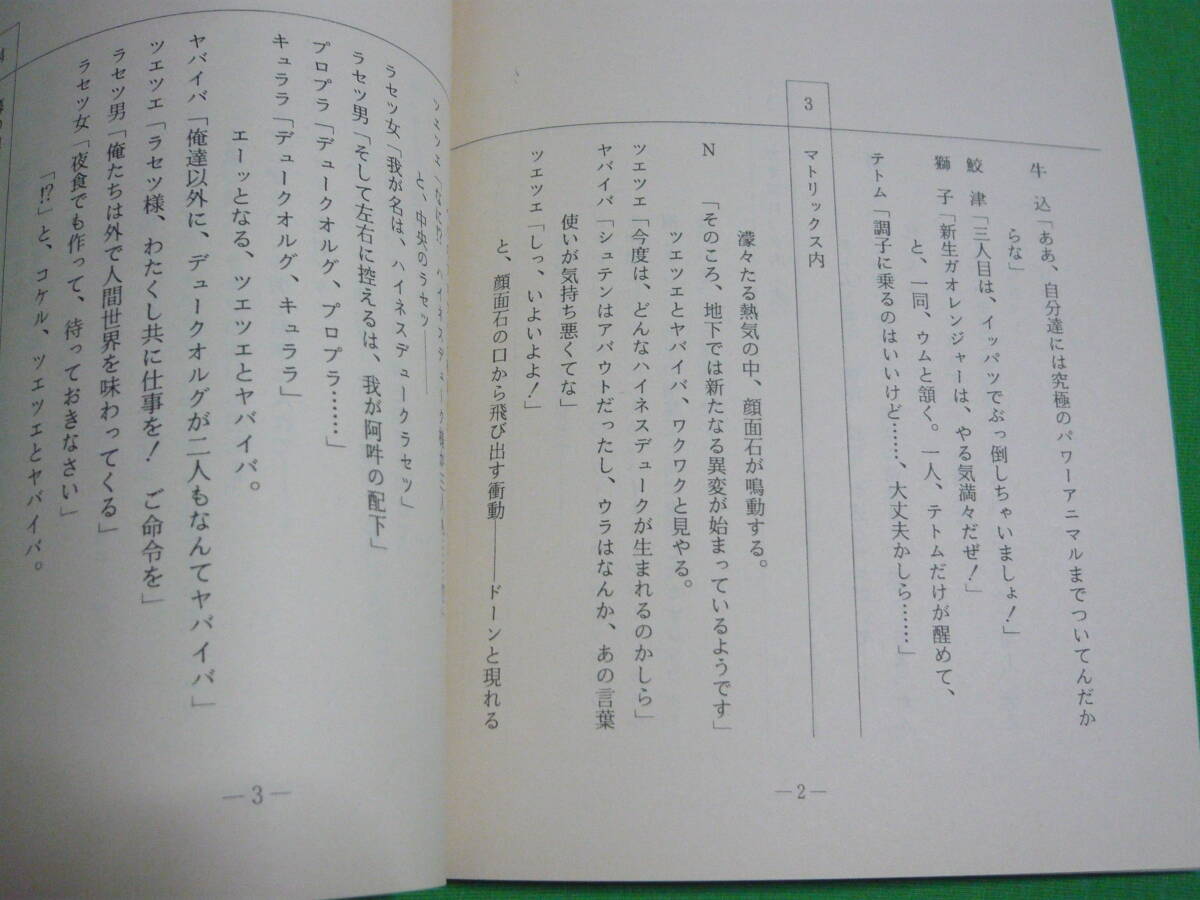 牛　込「ああ、自分達には究極のパワーアニマルまでついてんだか
らな」
鮫　津「三人目は、イッパツでぶっ倒しちゃいましょ！」
獅　子「新生ガオレンジャーは、やる気満々だぜ！」
と、一同、ウムと頷く。一人、テトムだけが醒めて、
テトム「調子に乗るのはいいけど……、大丈夫かしら……」
3　マトリックス内
濛々たる熱気の中、顔面石が鳴動する。
N　「そのころ、地下では新たなる異変が始まっているようです」
ツエツエとヤバイバ、ワクワクと見やる。
ツエツエ「今度は、どんなハイネスデュークが生まれるのかしら」
ヤバイバ「シュテンはアバウトだったし、ウラはなんか、あの言葉
使いが気持ち悪くてな」
ツエツエ「しっ、いよいよよ！」
と、顔面石の口から飛び出す衝動――ドーンと現れる
—2—
ツエツエ「なに!?　ハイネスデューク様が
と、中央のラセツ――
ラセツ女「我が名は、ハイネスデュークラセツ」
ラセツ男「そして左右に控えるは、我が阿吽の配下」
プロプラ「デュークオルグ、プロプラ……」
キュララ「デュークオルグ、キュララ」
エーッとなる、ツエツエとヤバイバ。
ヤバイバ「俺達以外に、デュークオルグが二人もなんてヤバイバ」
ツエツエ「ラセツ様、わたくし共に仕事を！　ご命令を」
ラセツ男「俺たちは外で人間世界を味わってくる」
ラセツ女「夜食でも作って、待っておきなさい」
「!?」と、コケル、ツエツエとヤバイバ。
—3—
4